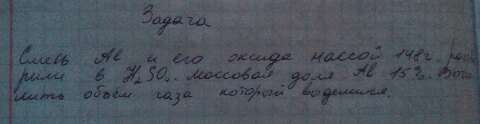 Задача
Смесь Al и его оксида массой 148г. раст
рили в H₂SO₄. Массовая доля Al 15%. Вычи
лить объём газа который выделился.